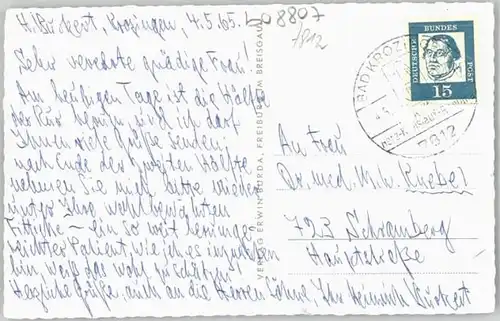 H. Burkert, Krozingen, 4.5.65.
Sehr verehrte gnädige Frau!
Am heutigen Tage ist die Hälfte
der Kur herum und ich darf
Ihnen viele Grüße senden.
nach Ende der zweiten Hälfte
nehmen Sie mich bitte wieder
unter Ihre wohlbewährten
Fittiche – ein so weit
Patient, wie ich es inzwischen
bin, weiß das wohl zu schätzen.
Herzliche Grüße, auch an die Herren Söhne, Ihr Heinrich Burkert
8807
7812
VERLAG ERWIN BURDA, FREIBURG IM BREISGAU
BAD KROZINGEN
4.5.
7812
DEUTSCHE BUNDES POST
15
An Frau
Dr. med. M. W.
723 Schramberg
Hauptstraße